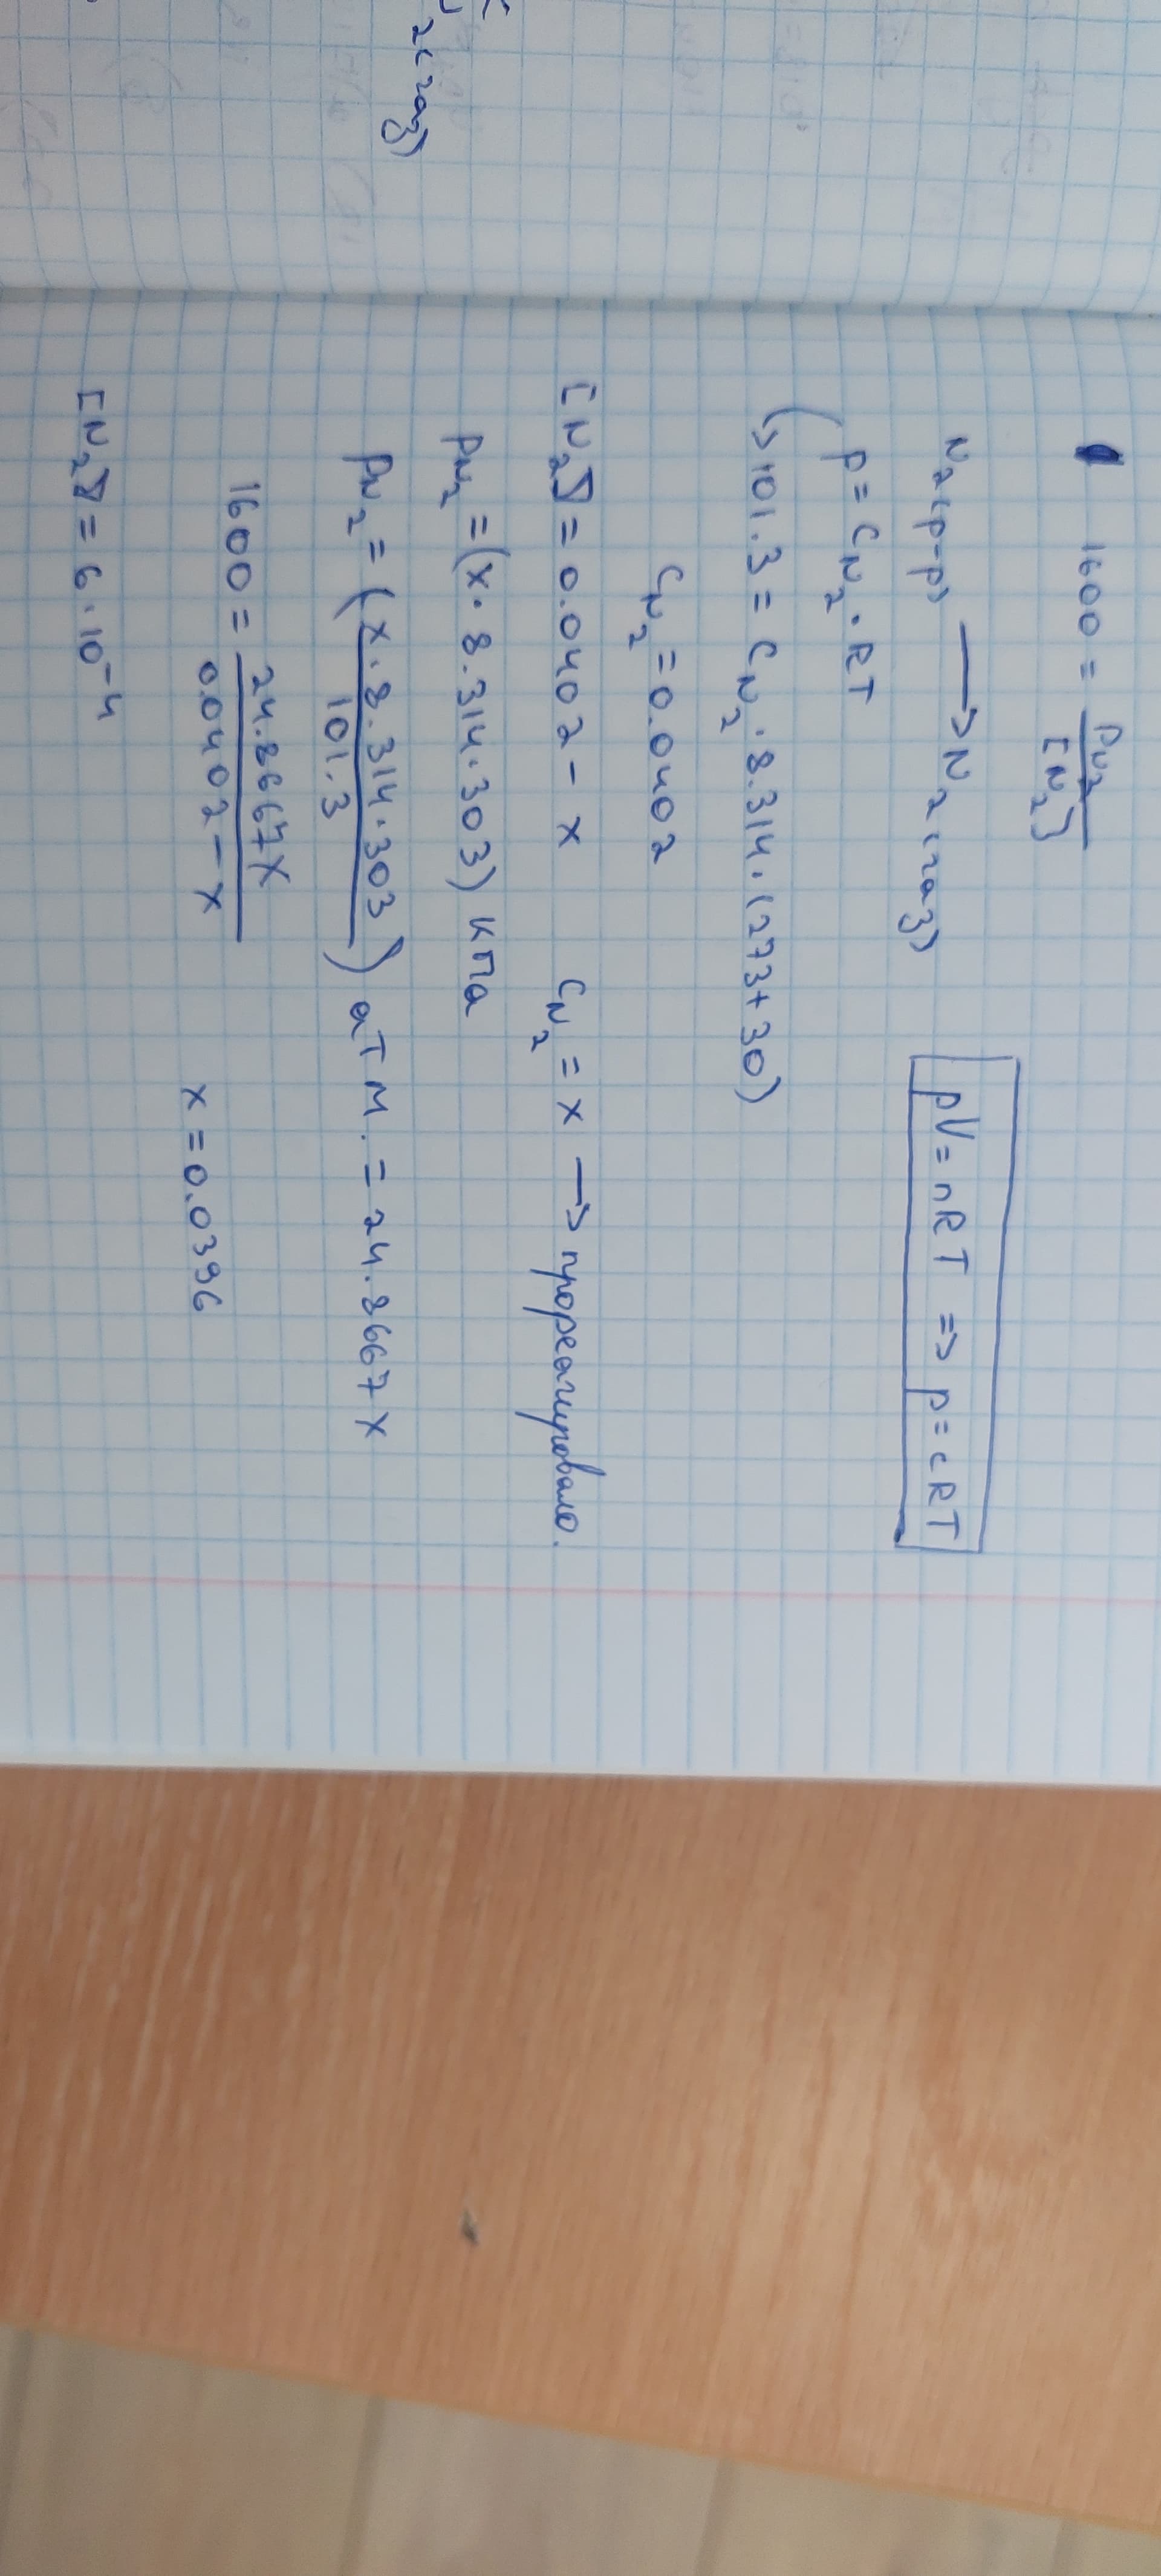 2(газ)
1600 = PN2 / [N2]
N2(р-р) → N2(газ)
pV = nRT ⇒ p = cRT
P = CN2 · RT
↳ 101.3 = CN2 · 8.314 · (273+30)
CN2 = 0.0402
[N2] = 0.0402 - x CN2 = x → прореагировало.
PN2 = (x · 8.314 · 303) кПа
PN2 = (x · 8.314 · 303 / 101.3) атм. = 24.8667x
1600 = 24.8667x / 0.0402 - x x = 0.0396
[N2] = 6 · 10^-4